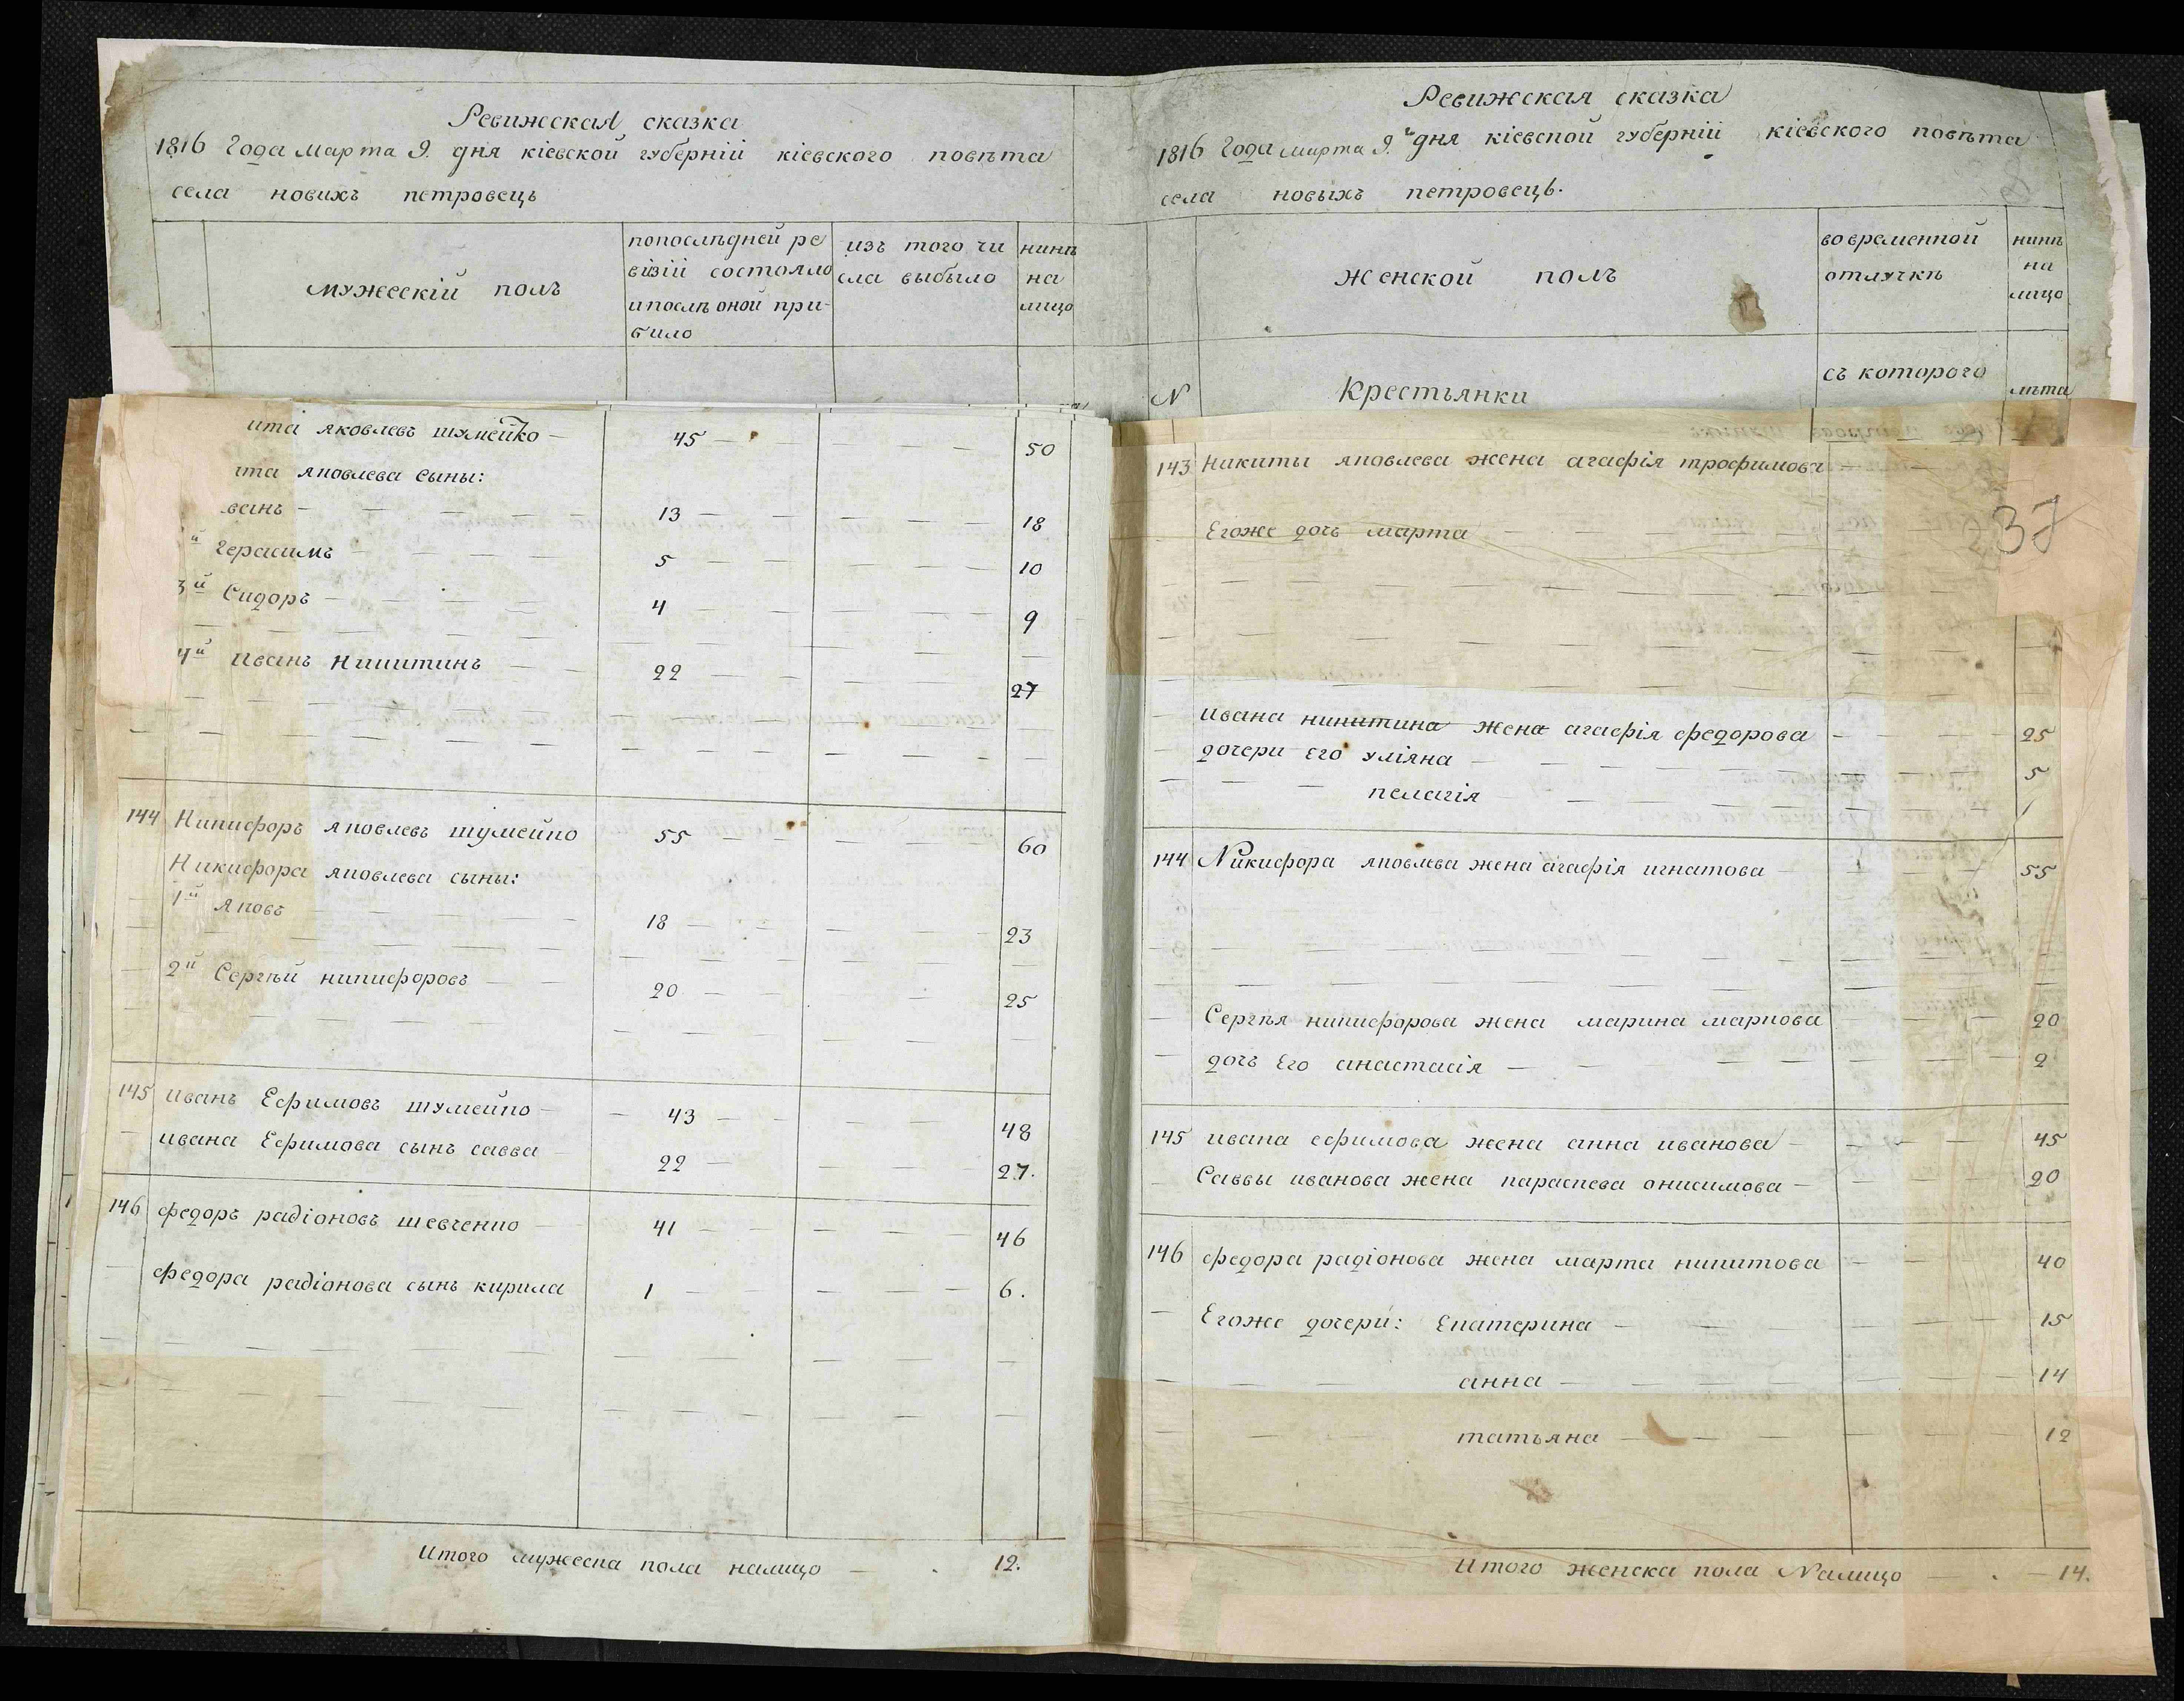 Ревижская сказка
1816 Года марта 9. дня кіевской губерніи кіевского повѣта
села новихъ петровець
мужескій полъ
попослѣдней ре
візіи состояло
ипослѣ оной при-
било
изъ того чи
сла выбыло
нинѣ
на
лицо
ита яковлевъ шумейко — 45 — — — 50
ита яковлева сыны:
ванъ — 13 — — 18
й Герасимъ — 5 — — 10
3й Сидоръ — 4 — — 9
4й иванъ Никитинъ — 22 — — 27
144 Никифоръ яковлевъ шумейко 55 — — 60
Никифора яковлева сыны:
1й яковъ — 18 — — 23
2й Сергѣй никифоровъ — 20 — — 25
145 иванъ Ефимовъ шумейко — 43 — — 48
ивана Ефимова сынъ савва — 22 — — 27.
146 федоръ радіоновъ шевченко — 41 — — 46
федора радіонова сынъ кирила 1 — — 6.
Итого мужеска пола налицо — . 12.
Ревижская сказка
1816 Года марта 9.г дня кіевской губерніи кіевского повѣта
села новыхъ петровець.
женской полъ
во временной
отлучкѣ
нинѣ
на
лицо
N Крестьянки
съ которого
лѣта
143 Никиты яковлева жена агафія трофимова —
37
Егоже дочь марта —
ивана никитина жена агафія федорова — 25
дочери его уліяна — 5
— пелагія — 1
144 Никифора яковлева жена агафія игнатова — 55
Сергѣя никифорова жена марина маркова — 20
дочь Его анастасія — 2
145 ивана ефимова жена анна иванова — 45
Саввы иванова жена параскева онисимова — 20
146 федора радіонова жена марта никитова — 40
Егоже дочери: Екатерина — 15
анна — 14
татьяна — 12
Итого женска пола Налицо — . — 14.